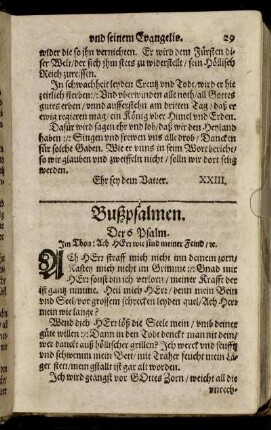 vnd seinem Evangelio. 29
wider die so jhn vernichten. Er wird dem Fürsten di
ser Welt/ der sich jhm stets zu widerstelt/ sein Höllisch
Reich zureissen.
In schwachheit leyden Creutz vnd Todt/ wird er hie
zeitlich sterben :/: Vnd vberwinden alle noth/ all Gottes
gunst erben/ vnnd aufferstehn am dritten Tag/ daß er
ewig regieren mag/ ein König vber Himel vnd Erden.
Dafür wird sagen ehr vnd lob/ daß wir den Heyland
haben :/: Singen vnd frewen vns alle drob/ Danck en
für solche Gaben. Wie er vnns in seim Wort bericht/
so wir glauben vnd zweiffeln nicht/ solln wir dort selig
werden.
Ehr sey dem Vatter. XXIII.
Bußpsalmen.
Der 6 Psalm.
Im Thon: Ach HErr wie sind meiner Feind/ ꝛc.
ACh HErr straff mich nicht inn deinem zorn/
Kasten mich nicht im Grimme :/: Gnad mir
HErr sonst bin ich verlorn/ meiner Krafft der
ist gantz nimme. Heil mich HErr/ denn mein Bein
vnd Seel/ vor grossem schrecken leyden quel/ Ach Herr
mein wie lange?
Wend dich HErr löß die Seele mein/ vmb deiner
güte willen :/: Dann in den Todt denckt man nit dein/
wer danckt auß höllischer grillen? Ich werck vnd seufftz
vnd schwemm mein Bett/ mit Träher feucht mein läger
stett/ mein gstalt ist gar alt worden.
Ich wird geangst vor GOttes Zorn/ weicht all die
vnrech-